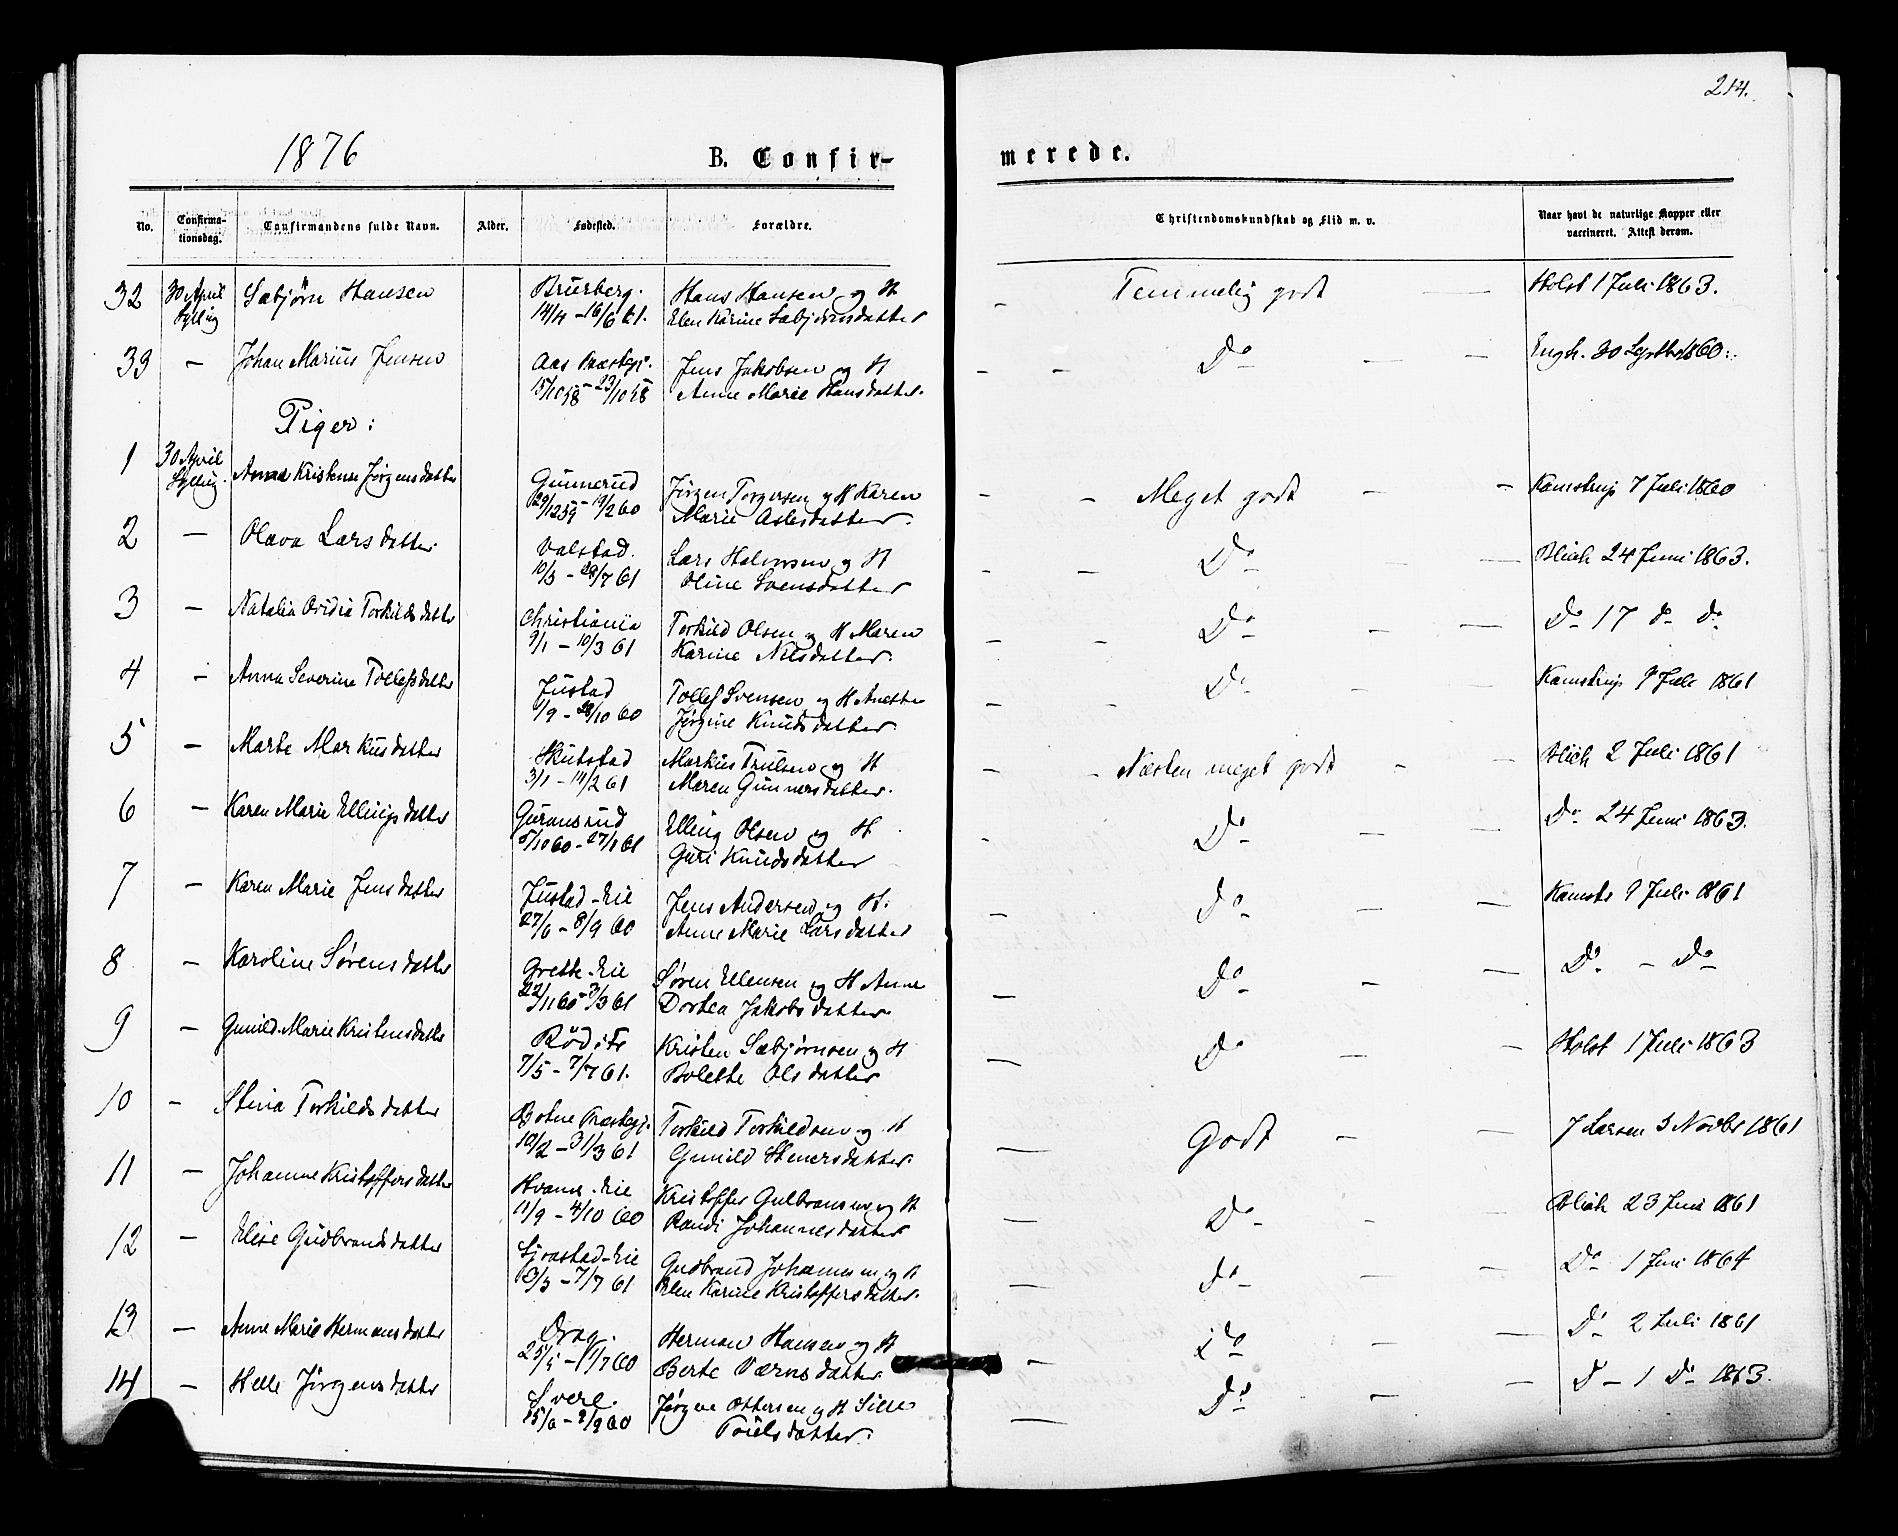 214.
1876
B. Confir-
merede.
No.
Confirma-
tionsdag.
Confirmandens fulde Navn.
Alder.
Fødested.
Forældre.
Christendomskundskab og Flid m. v.
Naar havt de naturlige Kopper eller
vaccineret. Attest derom.
32 30 April Sæbjørn Hansen Bruerberg. Hans Hansen og H — Temmelig godt — Holst 1 Juli 1863.
Sylling 14/4 - 16/6 61. Elen Karine Sæbjørnsdatter
33 — Johan Marius Jensen Aas Præstegj. Jens Jakobsen og H — — Do — — Engh. 30 Septbr 1860.
15/10 58 - 23/10 58 Anne Marie Hansdatter.
Piger:
1 30 April Anna Kristense Jørgensdatter Gunnerud Jørgen Torgersen og H Karen — — Meget godt — — Kamstrup 7 Juli 1860
Sylling. 29/12 59 - 19/2 60 Marie Aslesdatter.
2 — Olava Larsdatter Valstad. Lars Halvorsen og H — — Do — Blich 24 Juni 1863.
10/3 - 28/7 61 Oline Svensdatter
3 — Natalia Ovidia Torkildsdatter Christiania Torkild Olsen og H Maren — — Do — — Do 17 Do Do
9/1 - 10/3 61 Karine Nilsdatter.
4 — Anna Severine Tollefsdatter Justad Tollef Svensen og H Anette — — Do — — Kamstrup 9 Juli 1861
1/9 - 28/10 60 Jørgine Knudsdatter.
5 — Marte Markusdatter Skutstad Markus Trulsen og H — — Næsten meget godt — — Blich 2 Juli 1861
3/1 - 14/2 61 Maren Gunnersdatter.
6 — Karen Marie Ellingsdatter Guransrud Elling Olsen og H — Do — — Do 24 Juni 1863.
5/10 60 - 27/1 61 Guri Knudsdatter
7 — Karen Marie Jensdatter Justad-Eie Jens Andersen og H. — Do — — Kamstr 9 Juli 1861
27/6 - 8/9 60 Anne Marie Larsdatter
8 — Karoline Sørensdatter Grette-Eie Søren Ellensen og H Anne — Do — — Do — Do
22/11 60 - 3/3 61 Dortea Jakobsdatter
9 — Gunild Marie Kristensdatter Kristen Sæbjørnsen og H — Do — — Holst 1 Juli 1863
7/5 - 7/7 61. Bolette Olsdatter
10 — Stina Torkildsdatter Botne Præstegj. Torkild Torkildsen og H — Godt — — J Larsen 3 Novbr 1861
10/2 - 31/3 61 Gunild Stenersdatter.
11 — Johanne Kristoffersdatter Hvams-Eie Kristoffer Gulbransen og H — Do — — Blich 23 Juni 1861
11/9 - 4/10 60 Randi Johannesdatter
12 — Elise Gudbrandsdatter Sjøastad-Eie Gudbrand Johannesen og H — Do — — Do 1 Juni 1864
13/3 - 7/7 61 Elen Karine Kristoffersdatter.
13 — Anne Marie Hermansdatter Drag. Herman Hansen og H — Do — — Do 2 Juli 1861
25/5 - 1/7 60 Berte Værnsdatter
14 — Helle Jørgensdatter Svere. Jørgen Ottersen og H Sille — Do — — Do — 1 Do 1863.
15/6 - 2/9 60 Poulsdatter.